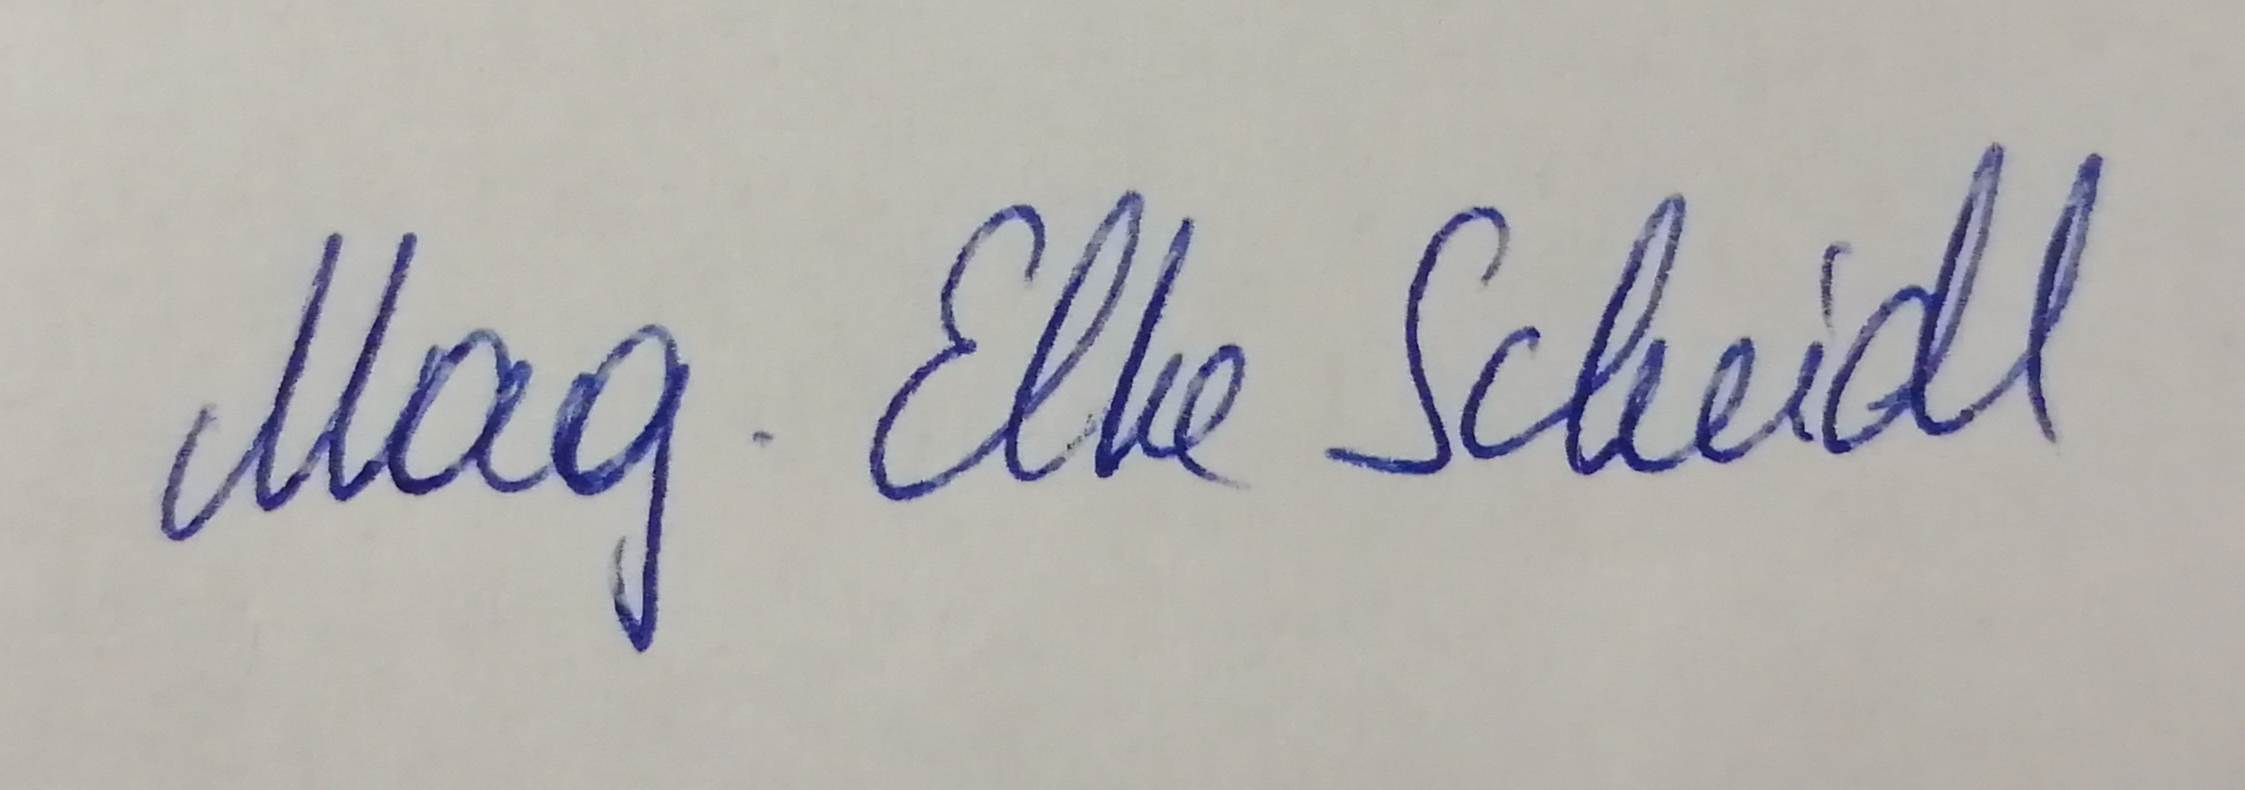 Mag. Elke Scheidl